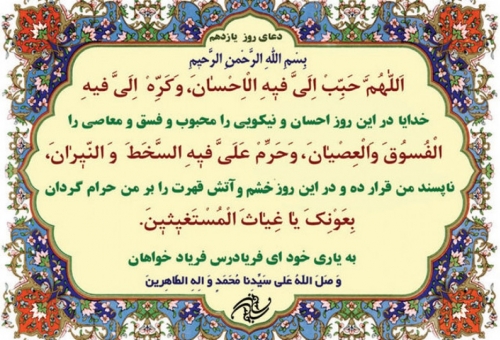 دعای روز یازدهم
بِسْمِ اللهِ الرَّحْمنِ الرَّحِیْمِ
اَللّهُمَّ حَبِّبْ اِلَیَّ فیهِ الْاِحْسانَ، وَکَرِّهْ اِلَیَّ فیهِ
خدایا در این روز احسان و نیکویی را محبوب و فسق و معاصی را
الْفُسُوْقَ وَالْعِصْیانَ، وَحَرِّمْ عَلَیَّ فیهِ السَّخَطَ وَ النّیرانَ،
ناپسند من قرار ده و در این روز خشم و آتش قهرت را بر من حرام گردان
بِعَوْنِکَ یا غِیاثَ الْمُسْتَغیثینَ.
به یاری خود ای فریادرس فریاد خواهان
وَ صَلَ اللهُ عَلی سَیِّدِنا مُحَمَدٍ وَ الِهِ الطّاهِرینَ